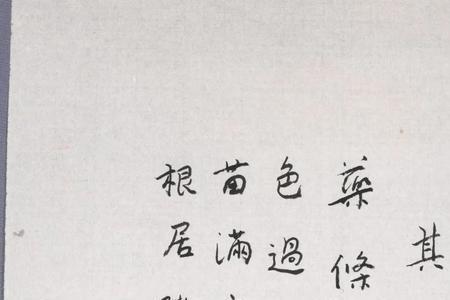 其
藥條
色過
苗滿
根居